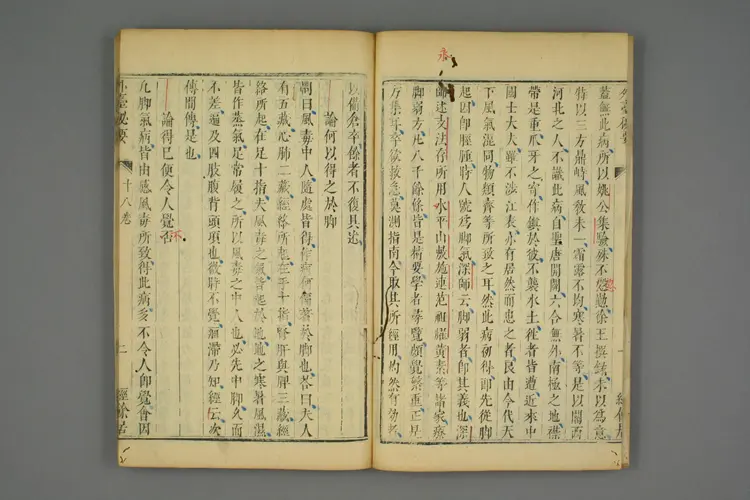 外臺秘要
蓋無此病所以姚公集驗殊不慇懃徐王撰錄未以爲意
特以三方鼎峙風敎未一霜露不均寒暑不等是以關西
河北之人不識此病自聖唐開闢六合無外南極之地襟
帶是重爪牙之寄作鎭於彼不襲水土徃者皆遭近來中
國士大夫雖不涉江表亦有居然而患之者良由今代天
下風氣混同物類齊等所致之耳然此病初得即先從脚
起因即脛腫時人號爲脚氣深師云脚弱者即其義也深
師述支法存所用永平山敷施連范祖耀黃素等諸脚
脚弱方凡八十餘條皆是精要學者尋覽頗覺繁重正是
方集耳卒欲救急莫測指南今取其所經用灼然有効者
以備倉卒餘者不復具述
論何以得之於脚
問曰風毒中人隨處皆得作病何偏著於脚也荅曰夫人
有五藏心肺二藏經絡所起在手十指肝腎與脾三藏經
絡所起在足十指夫風毒之氣皆起於地地之寒暑風濕
皆作蒸氣足常履之所以風毒之中人也必先中脚久而
不差遍及四肢腹背頭項也微時不覺痼滯乃知經云次
傳間傳是也
論得已便令人覺否
不
凡脚氣病皆由感風毒所致得此病多不令人即覺會因
外臺秘要
十八卷
二
經餘居